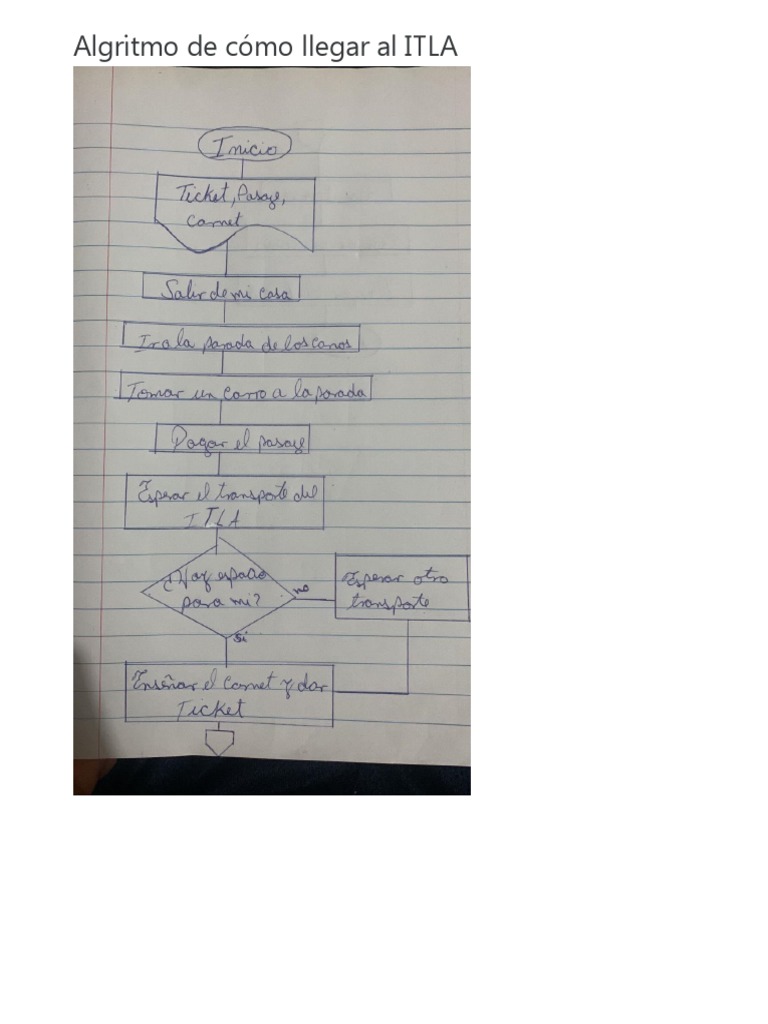 Algritmo de cómo llegar al ITLA
Inicio
Ticket, Pasaje,
Carnet
Salir de mi casa
Ir a la parada de los carros
Tomar un carro a la parada
Pagar el pasaje
Esperar el transporte del
ITLA
¿Hay espacio
para mi?
no
Esperar otro
transporte
Si
Enseñar el Carnet y dar
Ticket